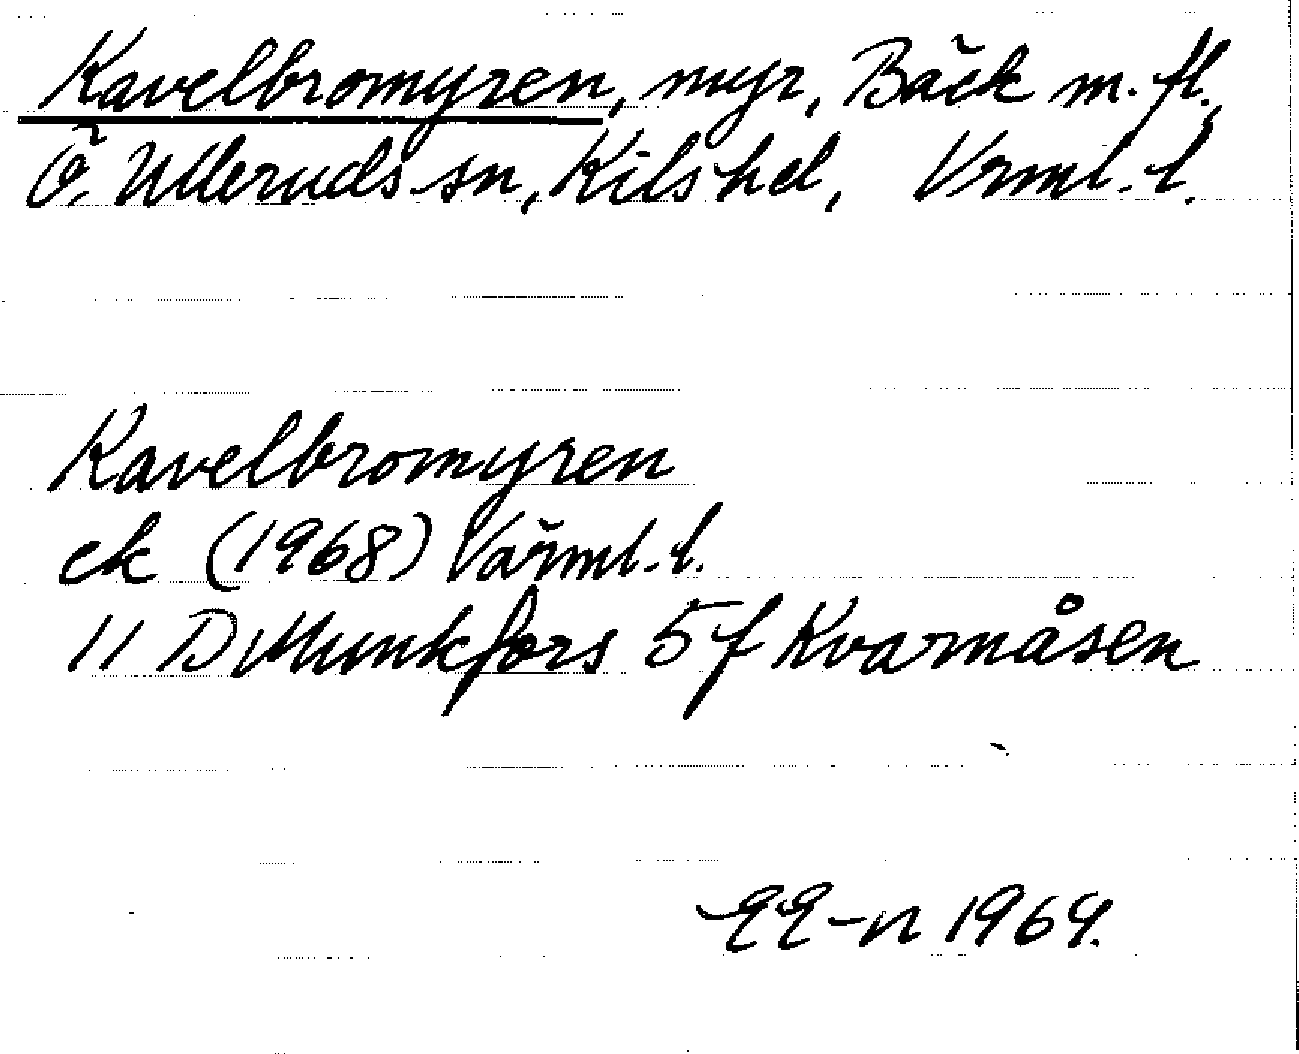 Kavelbromyren, myr, Bäck m. fl.,
Ö. Ulleruds sn, Kils hd, Vrml. l.
Kavelbromyren
ek (1968) Värml. l.
11 D Munkfors 5 f Kvarnåsen
EE-n 1969.